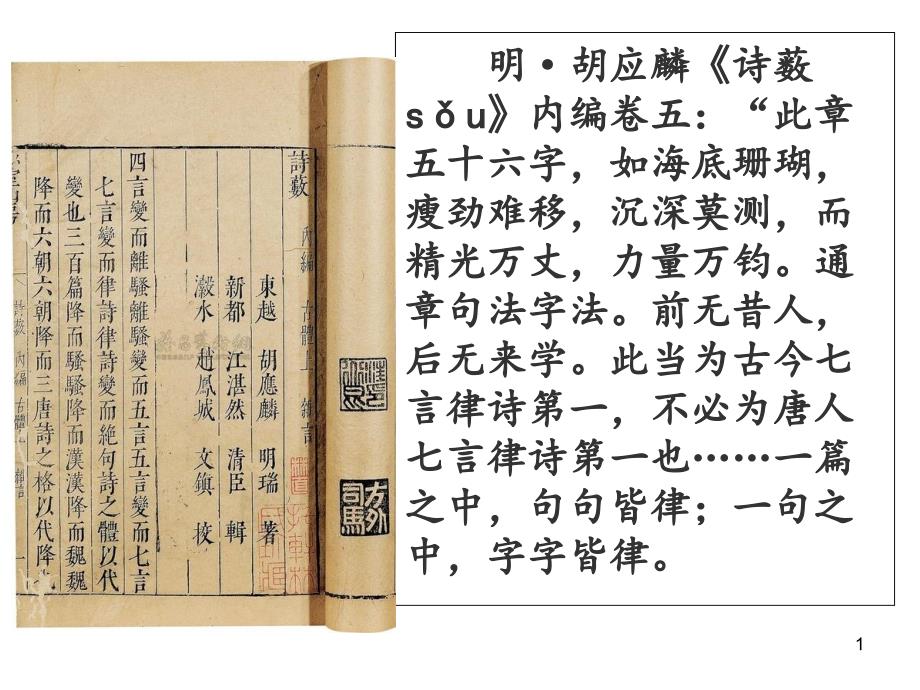 明·胡应麟《诗薮
sǒu》内编卷五：“此章
五十六字，如海底珊瑚，
瘦劲难移，沉深莫测，而
精光万丈，力量万钧。通
章句法字法。前无昔人，
后无来学。此当为古今七
言律诗第一，不必为唐人
七言律诗第一也……一篇
之中，句句皆律；一句之
中，字字皆律。
詩藪 內編 古體上 雜言
東越 胡應麟 明瑞 著
新都 江湛然 清臣 輯
瀫水 趙鳳城 文鎮 校
四言變而離騷離騷變而五言五言變而七言
七言變而律詩律詩變而絶句詩之體以代
變也三百篇降而騷騷降而漢漢降而魏魏
降而六朝六朝降而三唐詩之格以代降也
詩藪 內編 古體 雜言 一
方外
司馬
1